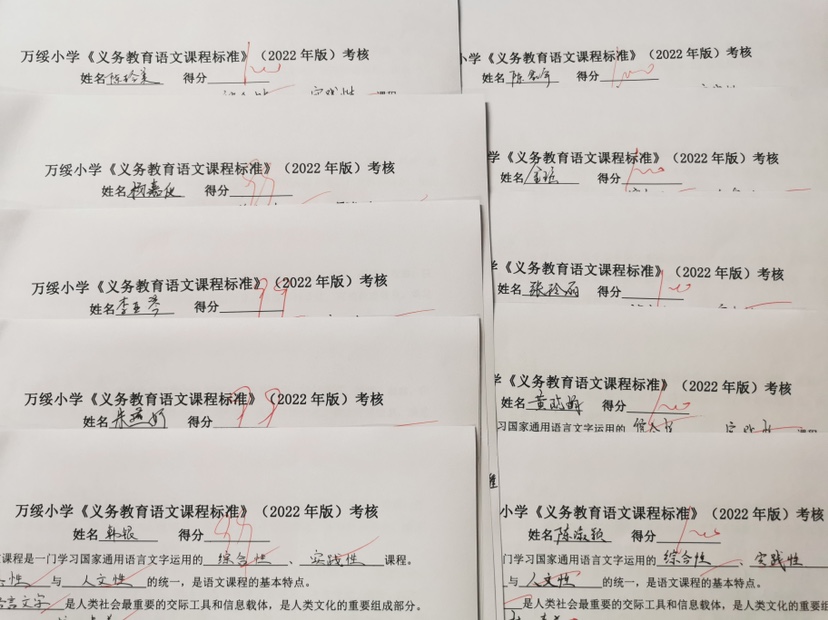 万绥小学《义务教育语文课程标准》（2022年版）考核
姓名陈玲美 得分100
实践性
万绥小学《义务教育语文课程标准》（2022年版）考核
姓名 得分99
万绥小学《义务教育语文课程标准》（2022年版）考核
姓名李亚琴 得分99
万绥小学《义务教育语文课程标准》（2022年版）考核
姓名朱燕 得分99
万绥小学《义务教育语文课程标准》（2022年版）考核
姓名韩银 得分99
课程是一门学习国家通用语言文字运用的综合性、实践性课程。
性与人文性的统一，是语文课程的基本特点。
言文字是人类社会最重要的交际工具和信息载体，是人类文化的重要组成部分。
小学《义务教育语文课程标准》（2022年版）考核
姓名陈 得分100
学《义务教育语文课程标准》（2022年版）考核
姓名金 得分100
学《义务教育语文课程标准》（2022年版）考核
姓名张玲丽 得分100
学《义务教育语文课程标准》（2022年版）考核
姓名黄 得分100
习国家通用语言文字运用的
小学《义务教育语文课程标准》（2022年版）考核
姓名陈 得分100
门学习国家通用语言文字运用的综合性、实践性
与人文性的统一，是语文课程的基本特点。
是人类社会最重要的交际工具和信息载体，是人类文化的重要组